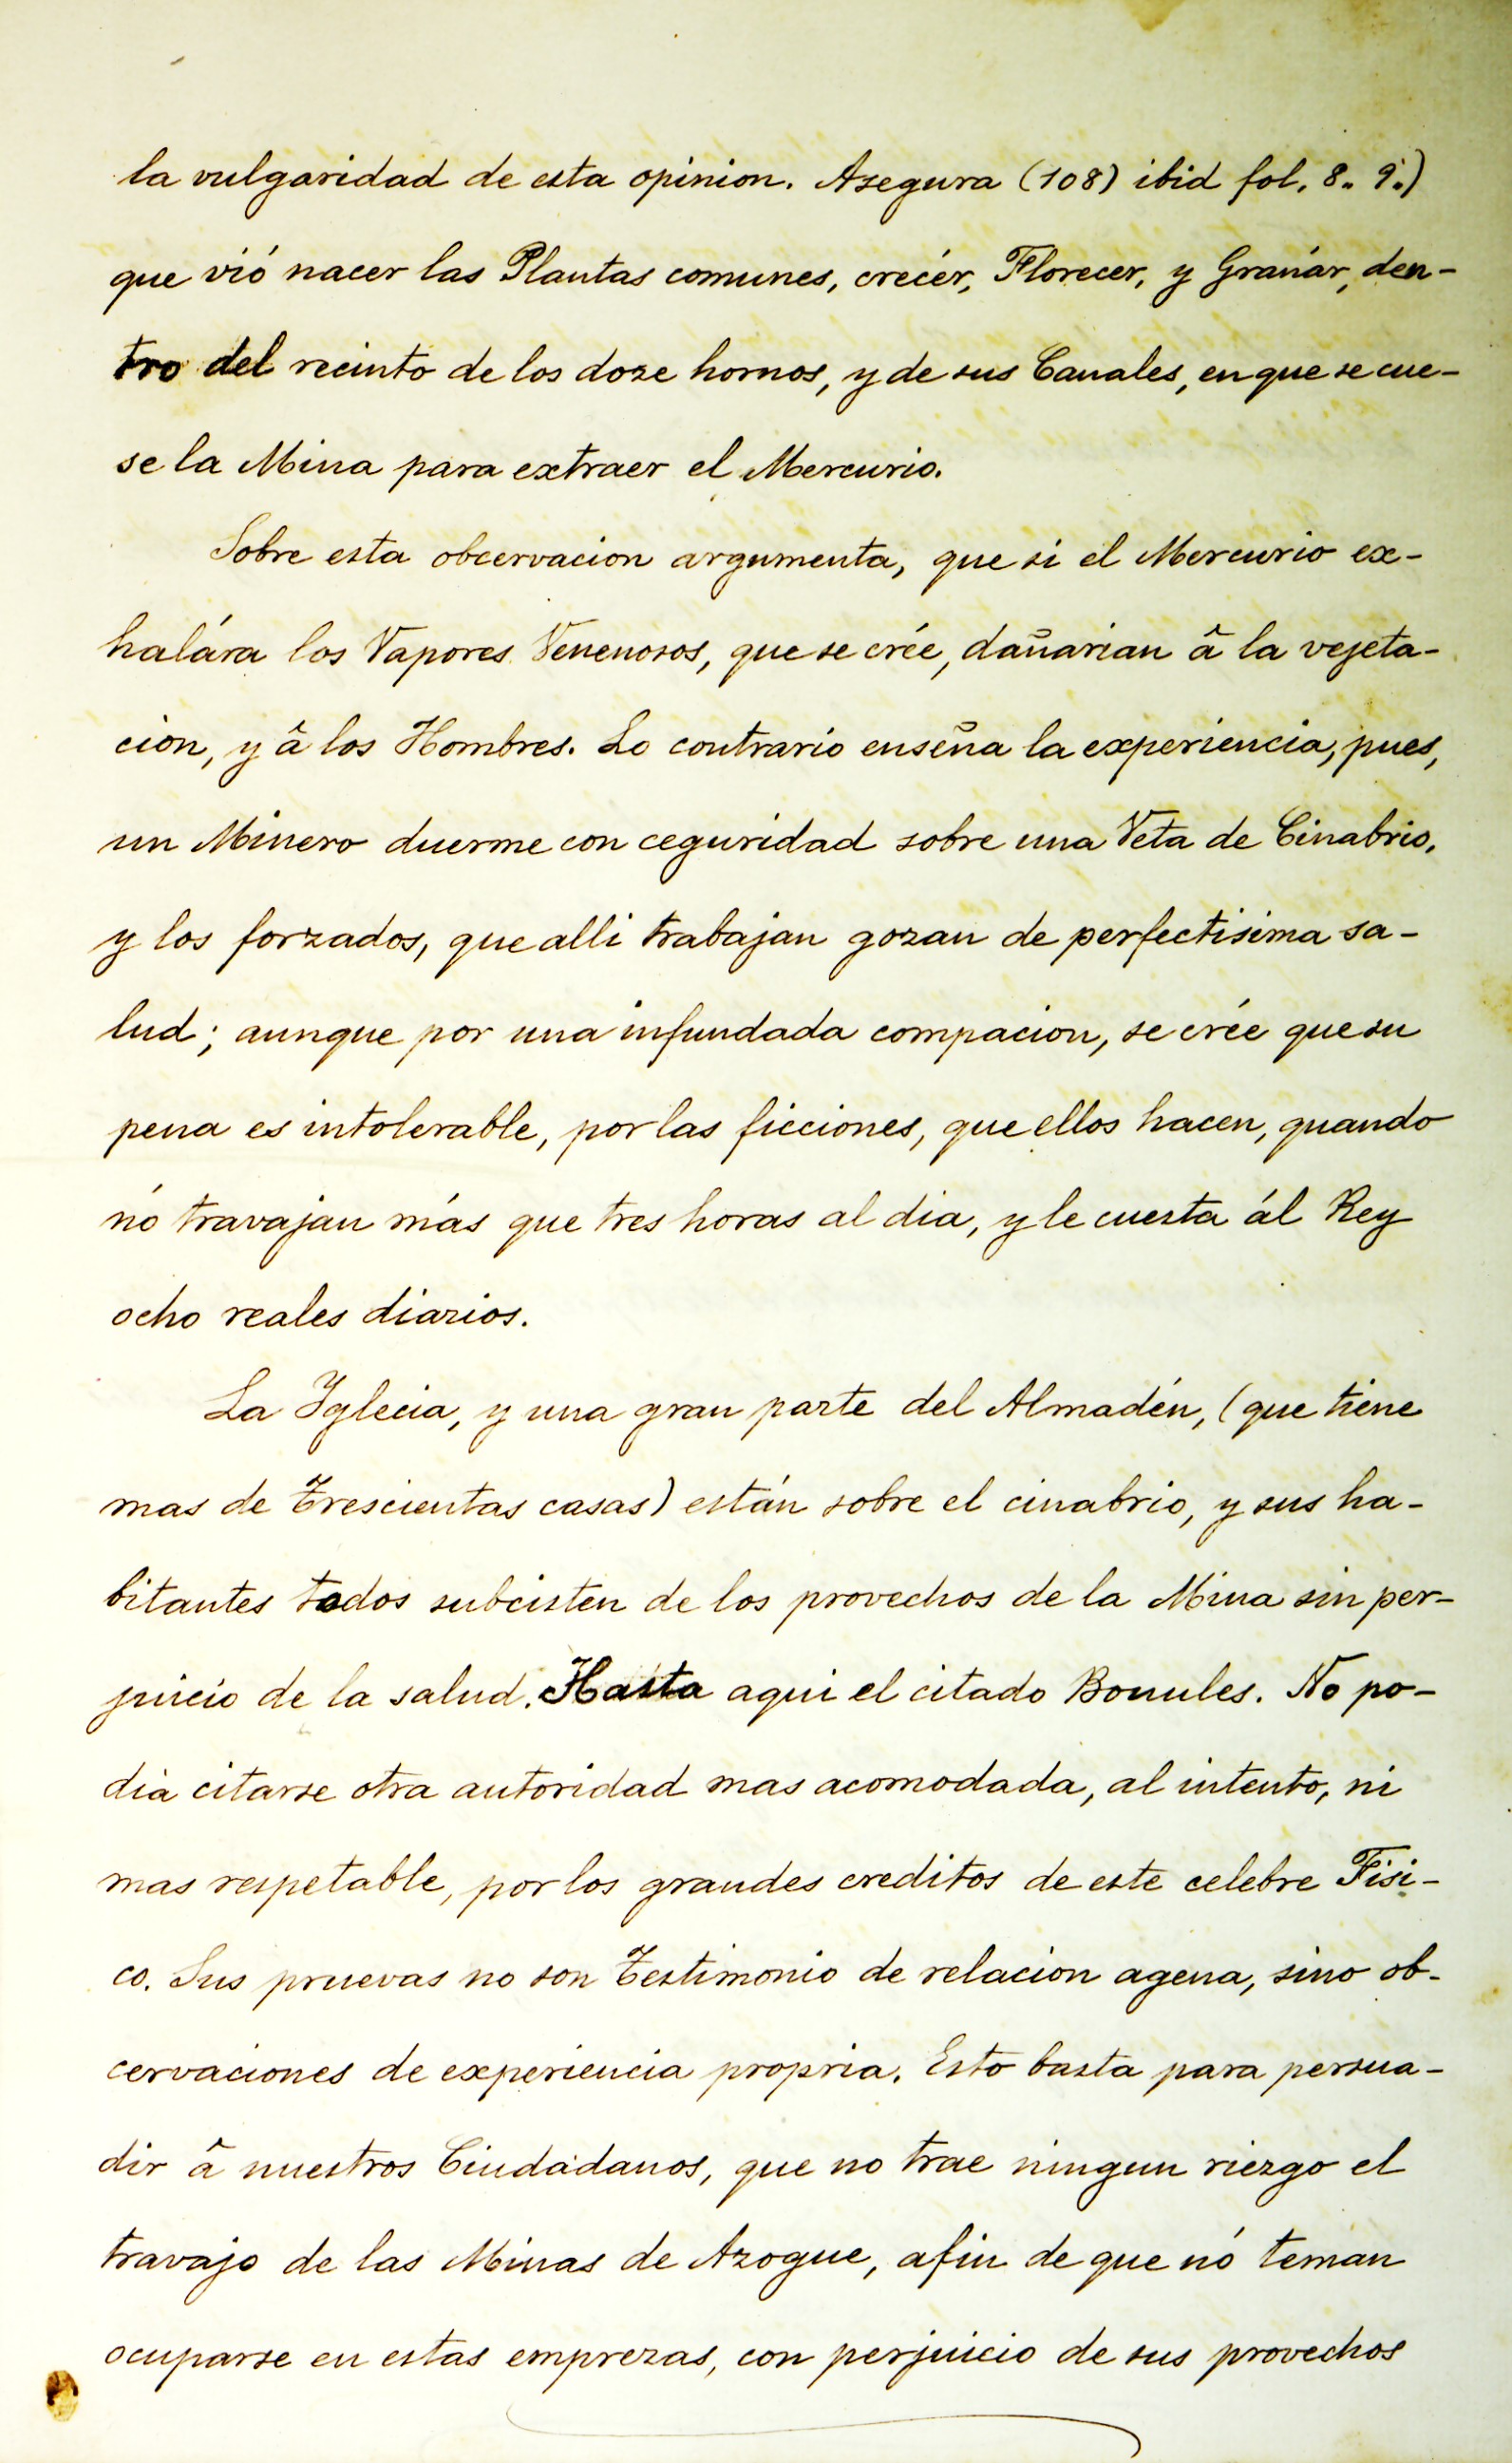 la vulgaridad de esta opinion. Asegura (108) ibid fol. 8. 9.)
que vió nacer las Plantas comunes, crecér, Florecer, y Granár, den-
tro del recinto de los doze hornos, y de sus Canales, en que se cue-
se la Mina para extraer el Mercurio.
Sobre esta obcervacion argumenta, que si el Mercurio ex-
halára los Vapores Venenosos, que se crée, dañarian â la vejeta-
cion, y â los Hombres. Lo contrario enseña la experiencia, pues,
un Minero duerme con ceguridad sobre una Veta de Cinabrio,
y los forzados, que alli trabajan gozan de perfectisima sa-
lud; aunque por una infundada compacion, se crée que su
pena es intolerable, por las ficciones, que ellos hacen, quando
nó travajan más que tres horas al dia, y le cuesta ál Rey
ocho reales diarios.
La Yglecia, y una gran parte del Almadén, (que tiene
mas de Trescientas casas) están sobre el cinabrio, y sus ha-
bitantes todos subcisten de los provechos de la Mina sin per-
juicio de la salud. Hasta aqui el citado Bonules. No po-
dia citarse otra autoridad mas acomodada, al intento, ni
mas respetable, por los grandes creditos de este celebre Fisi-
co. Sus pruevas no son Testimonio de relacion agena, sino ob-
cervaciones de experiencia propria. Esto basta para persua-
dir â nuestros Ciudadanos, que no trae ningun riezgo el
travajo de las Minas de Azogue, afin de que nó teman
ocuparse en estas emprezas, con perjuicio de sus provechos